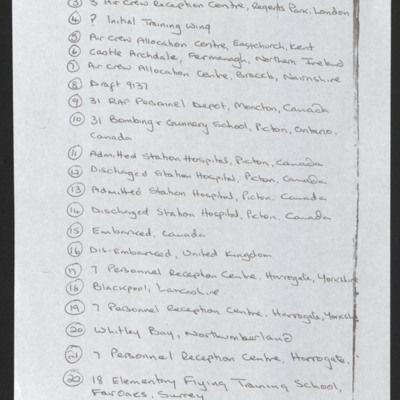 ③ 3 Air Crew Reception Centre, Regents Park, London
④ ? Initial Training Wing
⑤ Air Crew Allocation Centre, Eastchurch, Kent
⑥ Castle Archdale, Fermanagh, Northern Ireland
⑦ Air Crew Allocation Centre, Brackla, Nairnshire
⑧ Draft 9137
⑨ 31 RAF Personnel Depot, Moncton, Canada
⑩ 31 Bombing & Gunnery School, Picton, Ontario.
Canada
⑪ Admitted Station Hospital, Picton, Canada
⑫ Discharged Station Hospital, Picton. Canada
⑬ Admitted Station Hospital, Picton. Canada
⑭ Discharged Station Hospital, Picton. Canada
⑮ Embarked, Canada
⑯ Dis-Embarked, United Kingdom
⑰ 7 Personnel Reception Centre. Harrogate, Yorkshire
⑱ Blackpool, Lancashire
⑲ 7 Personnel Reception Centre. Harrogate, Yorkshire
⑳ Whitley Bay, Northumberland
㉑ 7 Personnel Reception Centre, Harrogate.
㉒ 18 Elementary Flying Training School,
FairOaks, Surrey